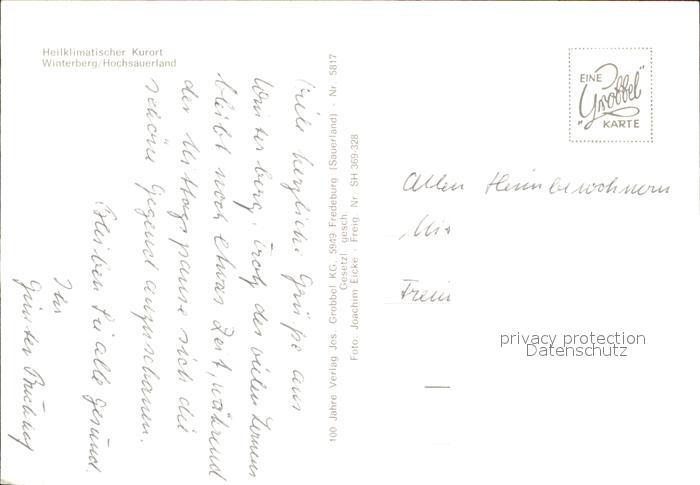 Heilklimatischer Kurort
Winterberg/Hochsauerland
Viele herzliche Grüße aus
Winterberg. Trotz des vielen Lernens
bleibt noch etwas Zeit, während
der Mittagspause sich die
schöne Gegend anzuschauen.
Bleiben Sie alle gesund.
Ihr
Günter
100 Jahre Verlag Jos. Grobbel KG, 5949 Fredeburg (Sauerland) · Nr. 5817
Gesetzl. gesch.
Foto: Joachim Eicke · Freig. Nr. SH 369-328
EINE
"Grobbel"
KARTE
Allen Heimbewohnern
privacy protection
Datenschutz